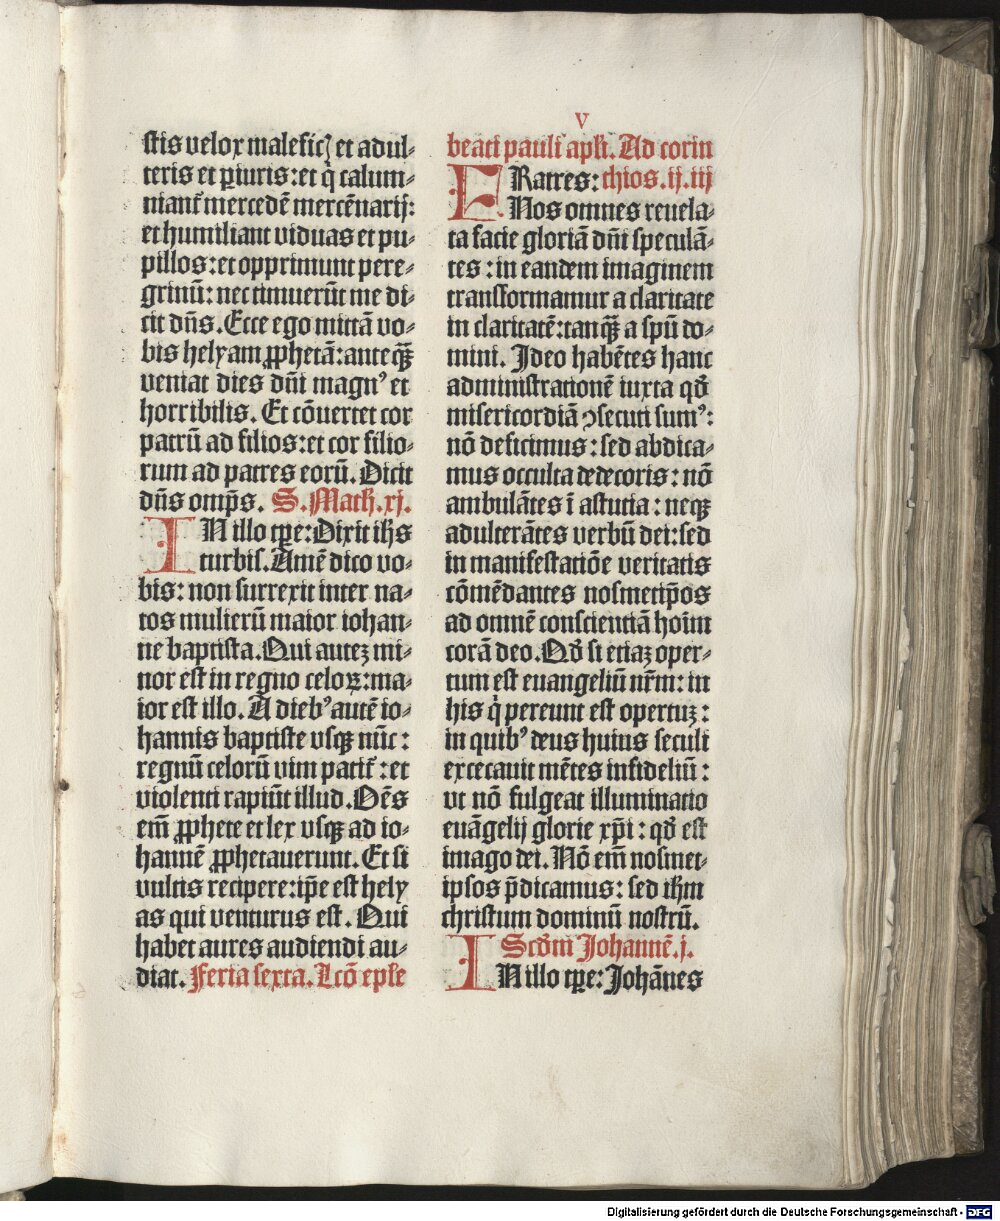 v
stis velox malefic⁊ et adul⸗
teris et ꝑiuris: et q̇ calum⸗
niant᷑ mercedē mercēnarij:
et humiliant viduas et pu⸗
pillos: et opprimunt pere⸗
grinū: nec timuerūt me di⸗
cit dn̄s. Ecce ego mittā vo⸗
bis helyam ꝓphetā: ante qꝫ̄
veniat dies dn̄i magnꝰ et
horribilis. Et cōuertet cor
patrū ad filios: et cor filio⸗
rum ad patres eorū. Dicit
dn̄s omp̄s. S. Math. xj.
IN illo tp̄e: Dixit ih̄s
turbis. Amē dico vo⸗
bis: non surrexit inter na⸗
tos mulierū maior iohan⸗
ne baptista. Qui auteꝫ mi⸗
nor est in regno celoꝝ: ma⸗
ior est illo. A diebꝰ autē io⸗
hannis baptiste vsqꝫ nūc:
regnū celorū vim patit᷑: et
violenti rapiūt illud. Om̄s
em̄ ꝓphete et lex vsqꝫ ad io⸗
hannē ꝓphetauerunt. Et si
vultis recipere: ip̄e est hely
as qui venturus est. Qui
habet aures audiendi au⸗
diat. Feria sexta. Lcō ep̄le
beati pauli apl̄i. Ad corin
FRatres: thios. ij. iij
Nos omnes reuela⸗
ta facie gloriā dn̄i speculā⸗
tes: in eandem imaginem
transformamur a claritate
in claritatē: tanqꝫ̄ a spū do⸗
mini. Ideo habētes hanc
administrationē iuxta qd̄
misericordiā ꝯsecuti sumꝰ:
nō deficimus: sed abdica⸗
mus occulta dedecoris: nō
ambulātes ī astutia: neqꝫ
adulterātes verbū dei: sed
in manifestatiōe veritatis
cōmēdantes nosmetip̄os
ad omnē conscientiā hoīm
corā deo. Qd̄ si etiaꝫ oper⸗
tum est euangeliū nr̄m: in
his q̇ pereunt est opertuꝫ:
in quibꝰ deus huius seculi
excecauit mētes infideliū:
vt nō fulgeat illuminatio
euāgelij glorie xp̄i: qd̄ est
imago dei. Nō em̄ nosmet⸗
ipsos p̄dicamus: sed ih̄m
christum dominū nostrū.
Scd̄m Johannē. j.
IN illo tp̄e: Johānes
Digitalisierung gefördert durch die Deutsche Forschungsgemeinschaft - DFG